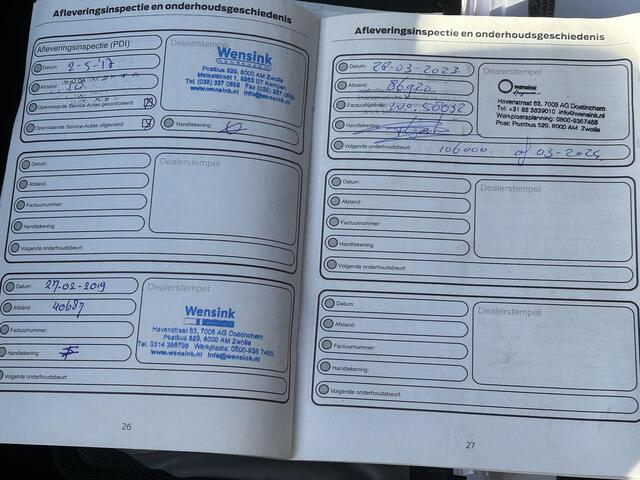 Afleveringsinspectie en onderhoudsgeschiedenis
Afleveringsinspectie (PDI)
Datum: 2-5-'17
Afstand: 10.
Openstaande Service-Acties gecontroleerd:
Openstaande Service-Acties uitgevoerd:
Dealerstempel
Wensink
Postbus 529, 8000 AM Zwolle
www.wensink.nl info@wensink.nl
Handtekening:
Datum:
Afstand:
Factuurnummer:
Handtekening:
Volgende onderhoudsbeurt:
Dealerstempel
Datum: 27-02-2019
Afstand: 40687
Factuurnummer:
Handtekening:
Volgende onderhoudsbeurt:
Dealerstempel
Wensink
Havenstraat 63, 7005 AG Doetinchem
Postbus 529, 8000 AM Zwolle
www.wensink.nl info@wensink.nl
26
Afleveringsinspectie en onderhoudsgeschiedenis
Datum: 28-03-2023
Afstand: 86920
Factuurnummer:
Handtekening:
Volgende onderhoudsbeurt: 106000. of 03-2024
Dealerstempel
wensink
Havenstraat 63, 7005 AG Doetinchem
Tel: +31 88 3839010 info@wensink.nl
Werkplaatsplanning: 0800-9367465
Post: Postbus 529, 8000 AM Zwolle
Datum:
Afstand:
Factuurnummer:
Handtekening:
Volgende onderhoudsbeurt:
Dealerstempel
Datum:
Afstand:
Factuurnummer:
Handtekening:
Volgende onderhoudsbeurt:
Dealerstempel
27